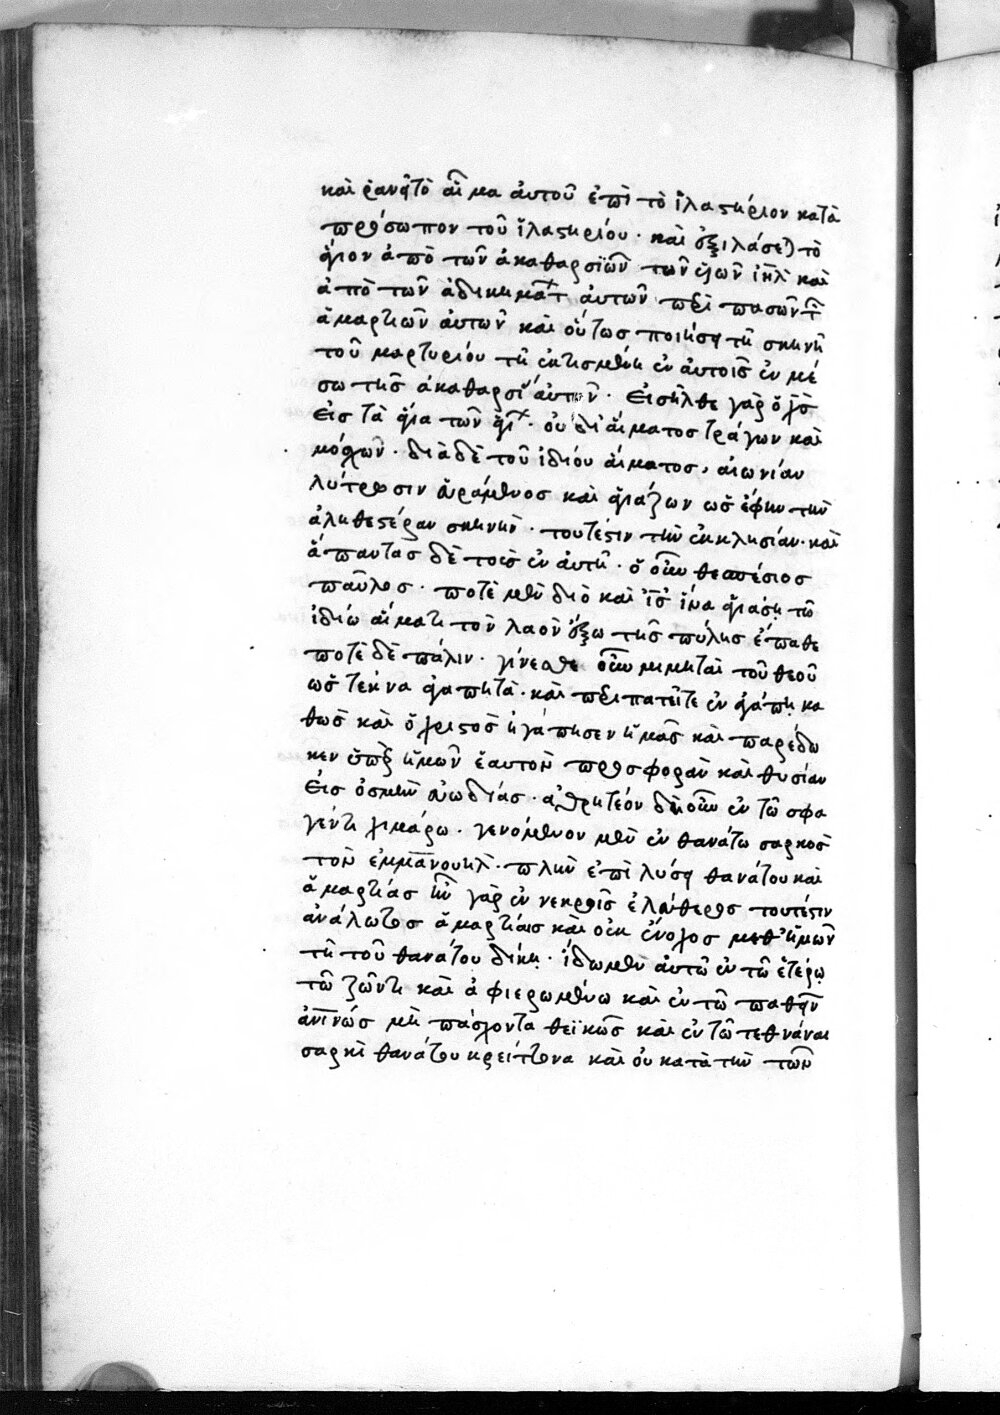 καὶ ῥανεῖ τὸ αἷμα αὐτοῦ ἐπὶ τὸ ἱλαστήριον κατὰ
πρόσωπον τοῦ ἱλαστηρίου· καὶ ἐξιλάσεται τὸ
ἅγιον ἀπὸ τῶν ἀκαθαρσιῶν τῶν υἱῶν ιηλ καὶ
ἀπὸ τῶν ἀδικημάτ αὐτῶν περὶ πασῶν τ
ἁμαρτιῶν αὐτῶν καὶ οὕτως ποιήσει τῇ σκηνῇ
τοῦ μαρτυρίου τῇ ἐκτισμένη ἐν αὐτοῖς ἐν μέ
σω τῆς ἀκαθαρσί αὐτῶν· Εἰσῆλθε γὰρ ὁ χς
Εἰς τὰ ἅγια τῶν ἁγί· οὐ δι αἵματος τράγων καὶ
μόσχων· διὰ δὲ τοῦ ἰδίου αἵματος, αἰωνίαν
λύτρωσιν εὑράμενος καὶ ἁγιάζων ὡς ἔφην τὴν
ἀληθεστέραν σκηνὴν· τουτέστιν τὴν ἐκκλησίαν· καὶ
ἅπαντας δὲ τοὺς ἐν αὐτῇ· ὁ οὖν θεσπέσιος
παῦλος· ποτὲ μὲν διὸ καὶ ις ἵνα ἁγιάσῃ τῶ
ἰδίω αἵματι τὸν λαὸν ἔξω τῆς πύλης ἔπαθε
ποτὲ δὲ πάλιν· γίνεσθε οὖν μιμηταὶ τοῦ θεοῦ
ὡς τέκνα ἀγαπητὰ· καὶ περιπατεῖτε ἐν ἀγάπῃ κα
θὼς καὶ ὁ χριστὸς ἠγάπησεν ἡμᾶς καὶ παρέδω
κεν ὑπὲρ ἡμῶν ἑαυτὸν προσφορὰν καὶ θυσίαν
Εἰς ὀσμὴν εὐωδίας· ἀθρητέον δὴ οὖν ἐν τῶ σφα
γέντι χιμάρω· γενόμενον μὲν ἐν θανάτω σαρκὸς
τὸν ἐμμανουηλ· πλὴν ἐπὶ λύσει θανάτου καὶ
ἁμαρτίας ἦν γὰρ ἐν νεκροῖς ἐλεύθερος τουτέστιν
ἀνάλωτος ἁμαρτίαις καὶ οὐκ ἔνοχος μεθ ἡμῶν
τῇ τοῦ θανάτου δίκῃ· ἴδωμεν αὐτῶ ἐν τῶ ἑτέρῳ
τῶ ζῶντι καὶ ἀφιερωμένω καὶ ἐν τῶ παθεῖν
ανινώς μὴ πάσχοντα θεϊκῶς καὶ ἐν τῶ τεθνάναι
σαρκὶ θανάτου κρείττονα καὶ οὐ κατὰ τὴν τῶν